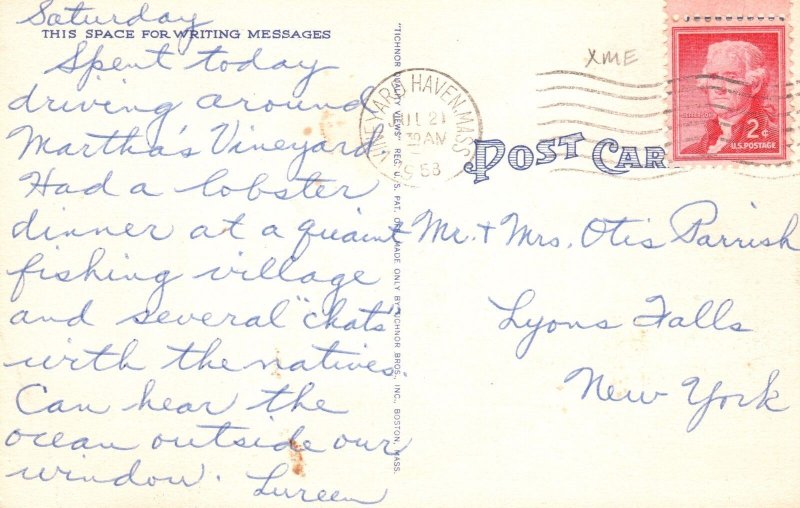 Saturday
THIS SPACE FOR WRITING MESSAGES
Spent today
driving around
Martha's Vineyard.
Had a lobster
dinner at a quaint
fishing village
and several "chats"
with the natives.
Can hear the
ocean outside our
window. Lureen
"TICHNOR QUALITY VIEWS" REG. U. S. PAT. OFF. MADE ONLY BY TICHNOR BROS., INC., BOSTON, MASS.
XME
VINEYARD HAVEN, MASS
JUL 21
30 AM
1958
2¢
U.S. POSTAGE
POST CARD
Mr. + Mrs. Otis Parrish
Lyons Falls
New York